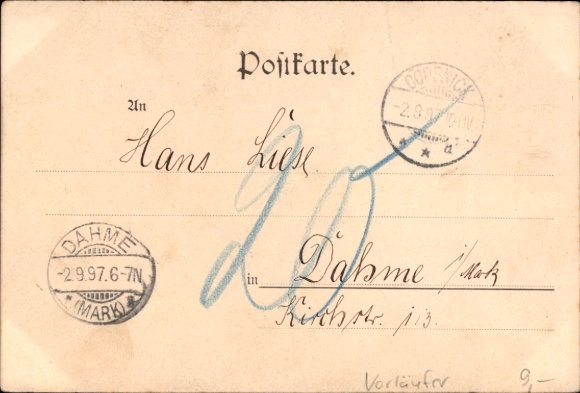 Postkarte.
An
Hans Liese
in Dahme i/Mark
Kirchstr. 113.
20
CÖPENICK
-2.9.97.
* * a
DAHME
-2.9.97.6-7N
* (MARK) *
Vorläufer 9,-